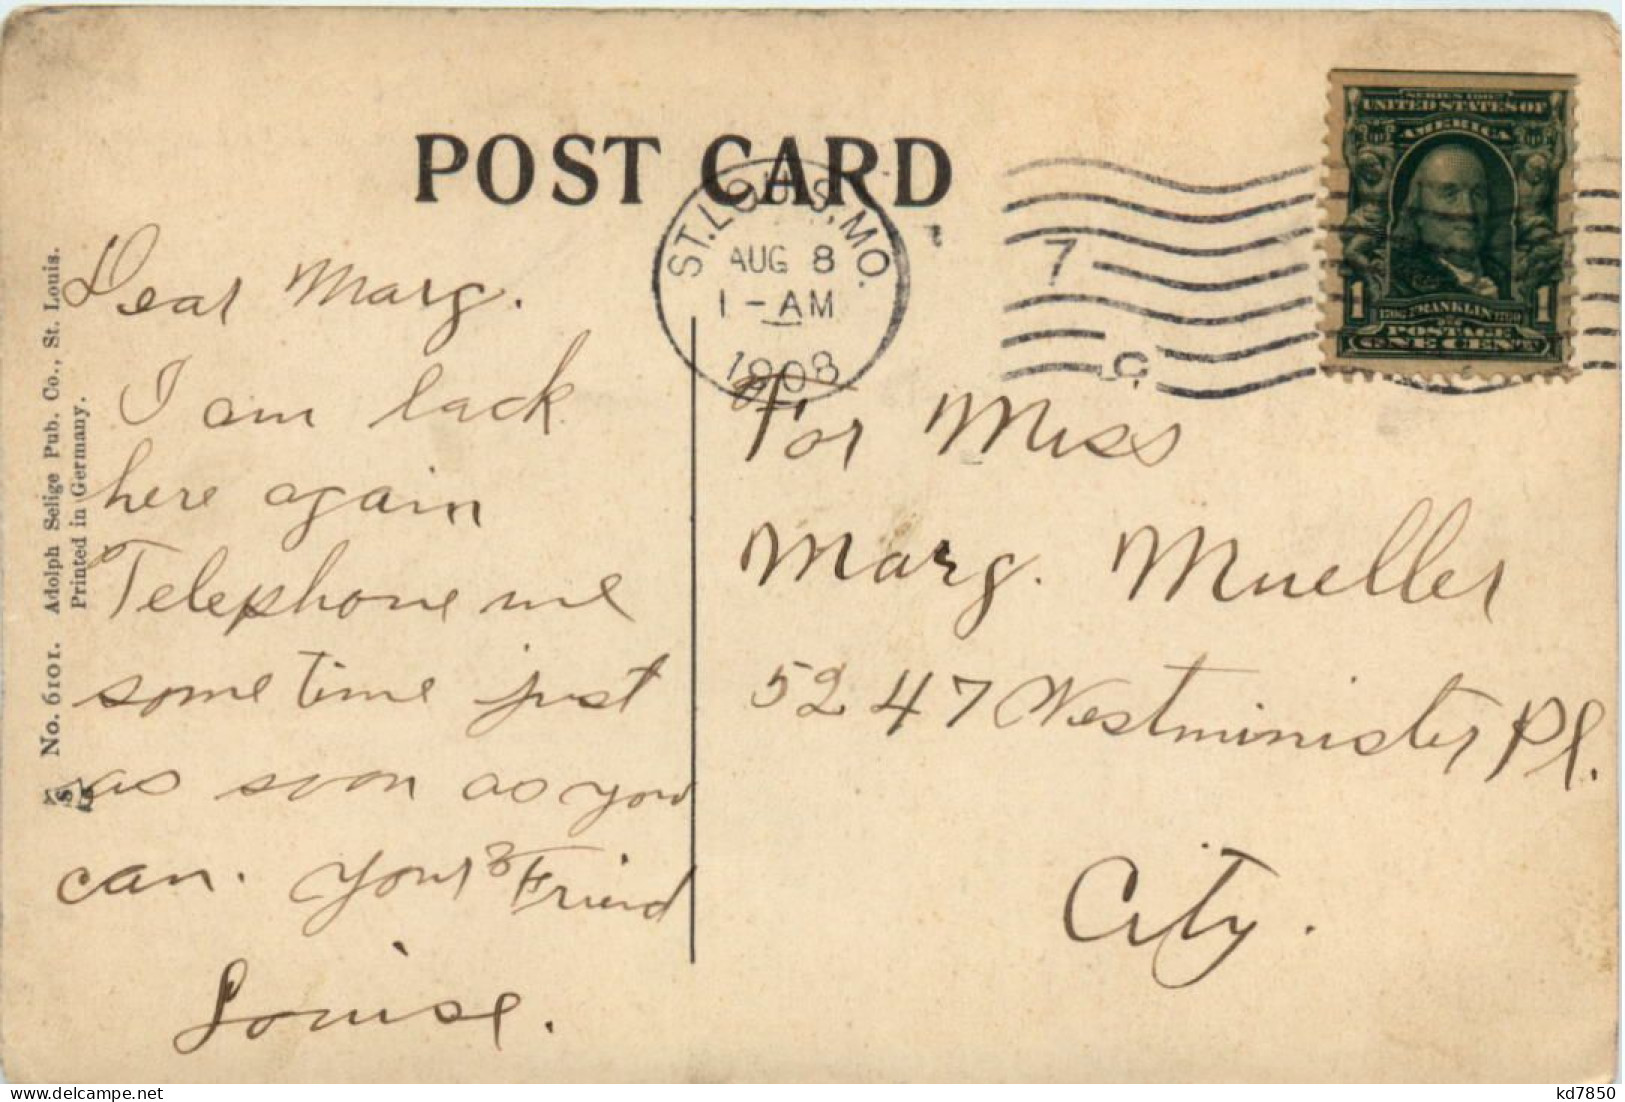 POST CARD
ST. LOUIS, MO.
AUG 8
1 - AM
1908
7
SERIES 1902
UNITED STATES OF
AMERICA
1706 FRANKLIN 1790
1 1
POSTAGE
ONE CENT
Dear Marg.
I am back
here again
Telephone me
some time just
as soon as you
can. Your Friend
Louise.
For Miss
Marg. Mueller
5247 Westminister Pl.
City.
No. 6101. Adolph Selige Pub. Co., St. Louis.
Printed in Germany.
delcampe.net
kd7850